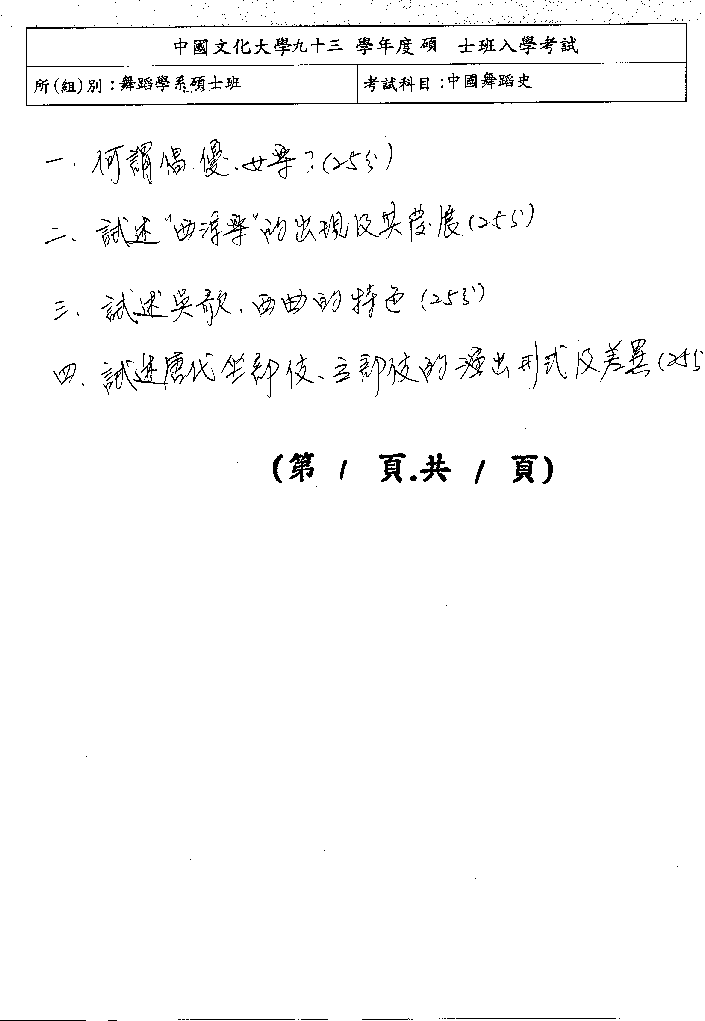 中國文化大學九十三 學年度碩 士班入學考試
所(組)別：舞蹈學系碩士班 考試科目：中國舞蹈史
一、何謂倡、優、女樂？(25分)
二、試述"西涼樂"的出現及其發展(25分)
三、試述吳歌、西曲的特色(25分)
四、試述唐代坐部伎、立部伎的演出形式及差異(25
(第 1 頁.共 1 頁)